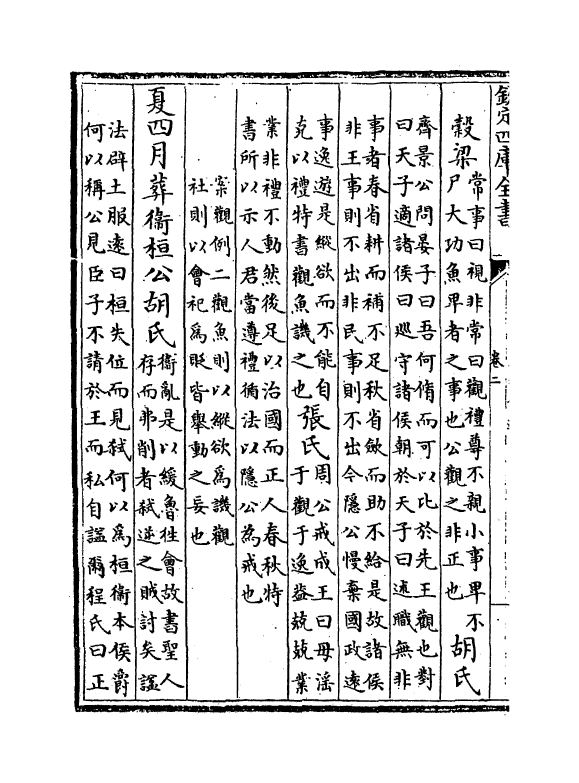 欽定四庫全書
卷二
穀梁常事曰視非常曰觀禮尊不親小事卑不
尸大功魚卑者之事也公觀之非正也胡氏
齊景公問晏子曰吾何脩而可以比於先王觀也對
曰天子適諸侯曰巡守諸侯朝於天子曰述職無非
事者春省耕而補不足秋省斂而助不給是故諸侯
非王事則不出非民事則不出今隱公慢棄國政遠
事逸遊是縱欲而不能自
克以禮特書觀魚譏之也張氏周公戒成王曰毋淫
于觀于逸益兢兢業
業非禮不動然後足以治國而正人春秋特
書所以示人君當遵禮循法以隱公為戒也
案觀例二觀魚則以縱欲為譏觀
社則以會祀為貶皆舉動之妄也
夏四月葬衛桓公胡氏衛亂是以緩魯往會故書聖人
存而弗削者弒逆之賊討矣諡
法辟土服遠曰桓失位而見弒何以為桓衛本侯爵
何以稱公見臣子不請於王而私自諡爾程氏曰正